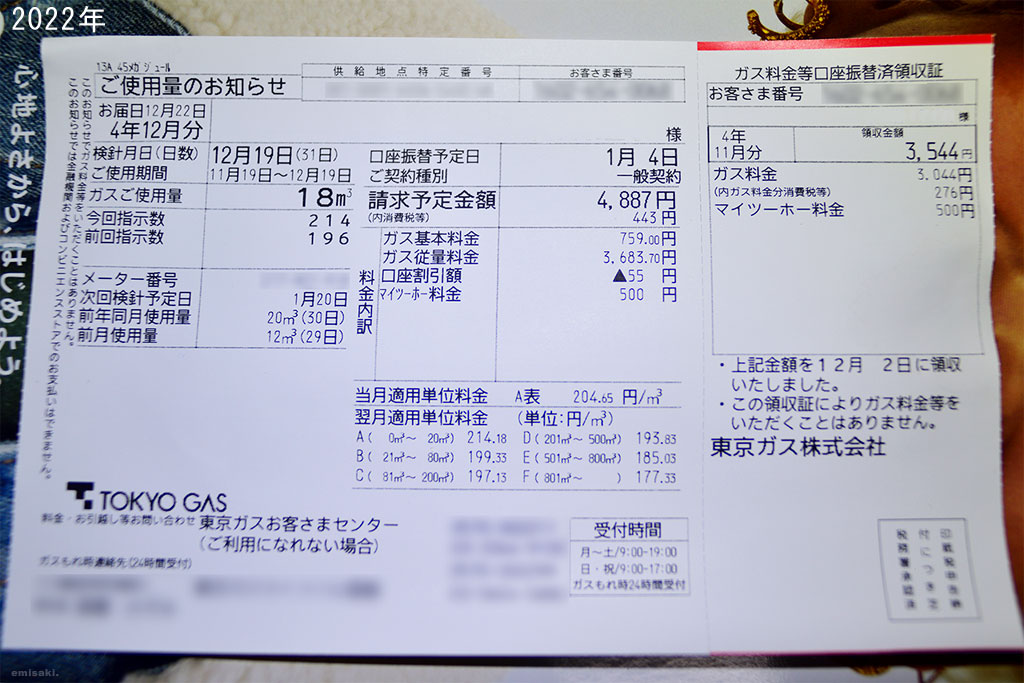 2022年
心地よさから、はじめよう。
このお知らせでガス料金等をいただくことはありません。
このお知らせでは金融機関およびコンビニエンスストアでのお支払いはできません。
13A 45メガジュール
ご使用量のお知らせ
供給地点特定番号
お客さま番号
お届日12月22日
4年12月分
様
検針月日(日数) 12月19日(31日)
ご使用期間 11月19日～12月19日
ガスご使用量 18m³
今回指示数 214
前回指示数 196
メーター番号
次回検針予定日 1月20日
前年同月使用量 20m³(30日)
前月使用量 12m³(29日)
口座振替予定日 1月 4日
ご契約種別 一般契約
請求予定金額 4,887円
(内消費税等) 443円
料金内訳
ガス基本料金 759.00円
ガス従量料金 3,683.70円
口座割引額 ▲55 円
マイツーホー料金 500 円
当月適用単位料金 A表 204.65 円/m³
翌月適用単位料金 (単位:円/m³)
A( 0m³～ 20m³) 214.18 D(201m³～ 500m³) 193.83
B( 21m³～ 80m³) 199.33 E(501m³～ 800m³) 185.03
C( 81m³～ 200m³) 197.13 F(801m³～ ) 177.33
TOKYO GAS
料金・お引越し等お問い合わせ 東京ガスお客さまセンター
(ご利用になれない場合)
ガスもれ時連絡先(24時間受付)
受付時間
月～土/9:00-19:00
日・祝/9:00-17:00
ガスもれ時24時間受付
ガス料金等口座振替済領収証
お客さま番号
様
4年
11月分
領収金額
3,544円
ガス料金 3,044円
(内ガス料金分消費税等) 276円
マイツーホー料金 500円
・上記金額を12月 2日に領収
いたしました。
・この領収証によりガス料金等を
いただくことはありません。
東京ガス株式会社
印紙税申告納
付につき芝
税務署承認済
emisaki.